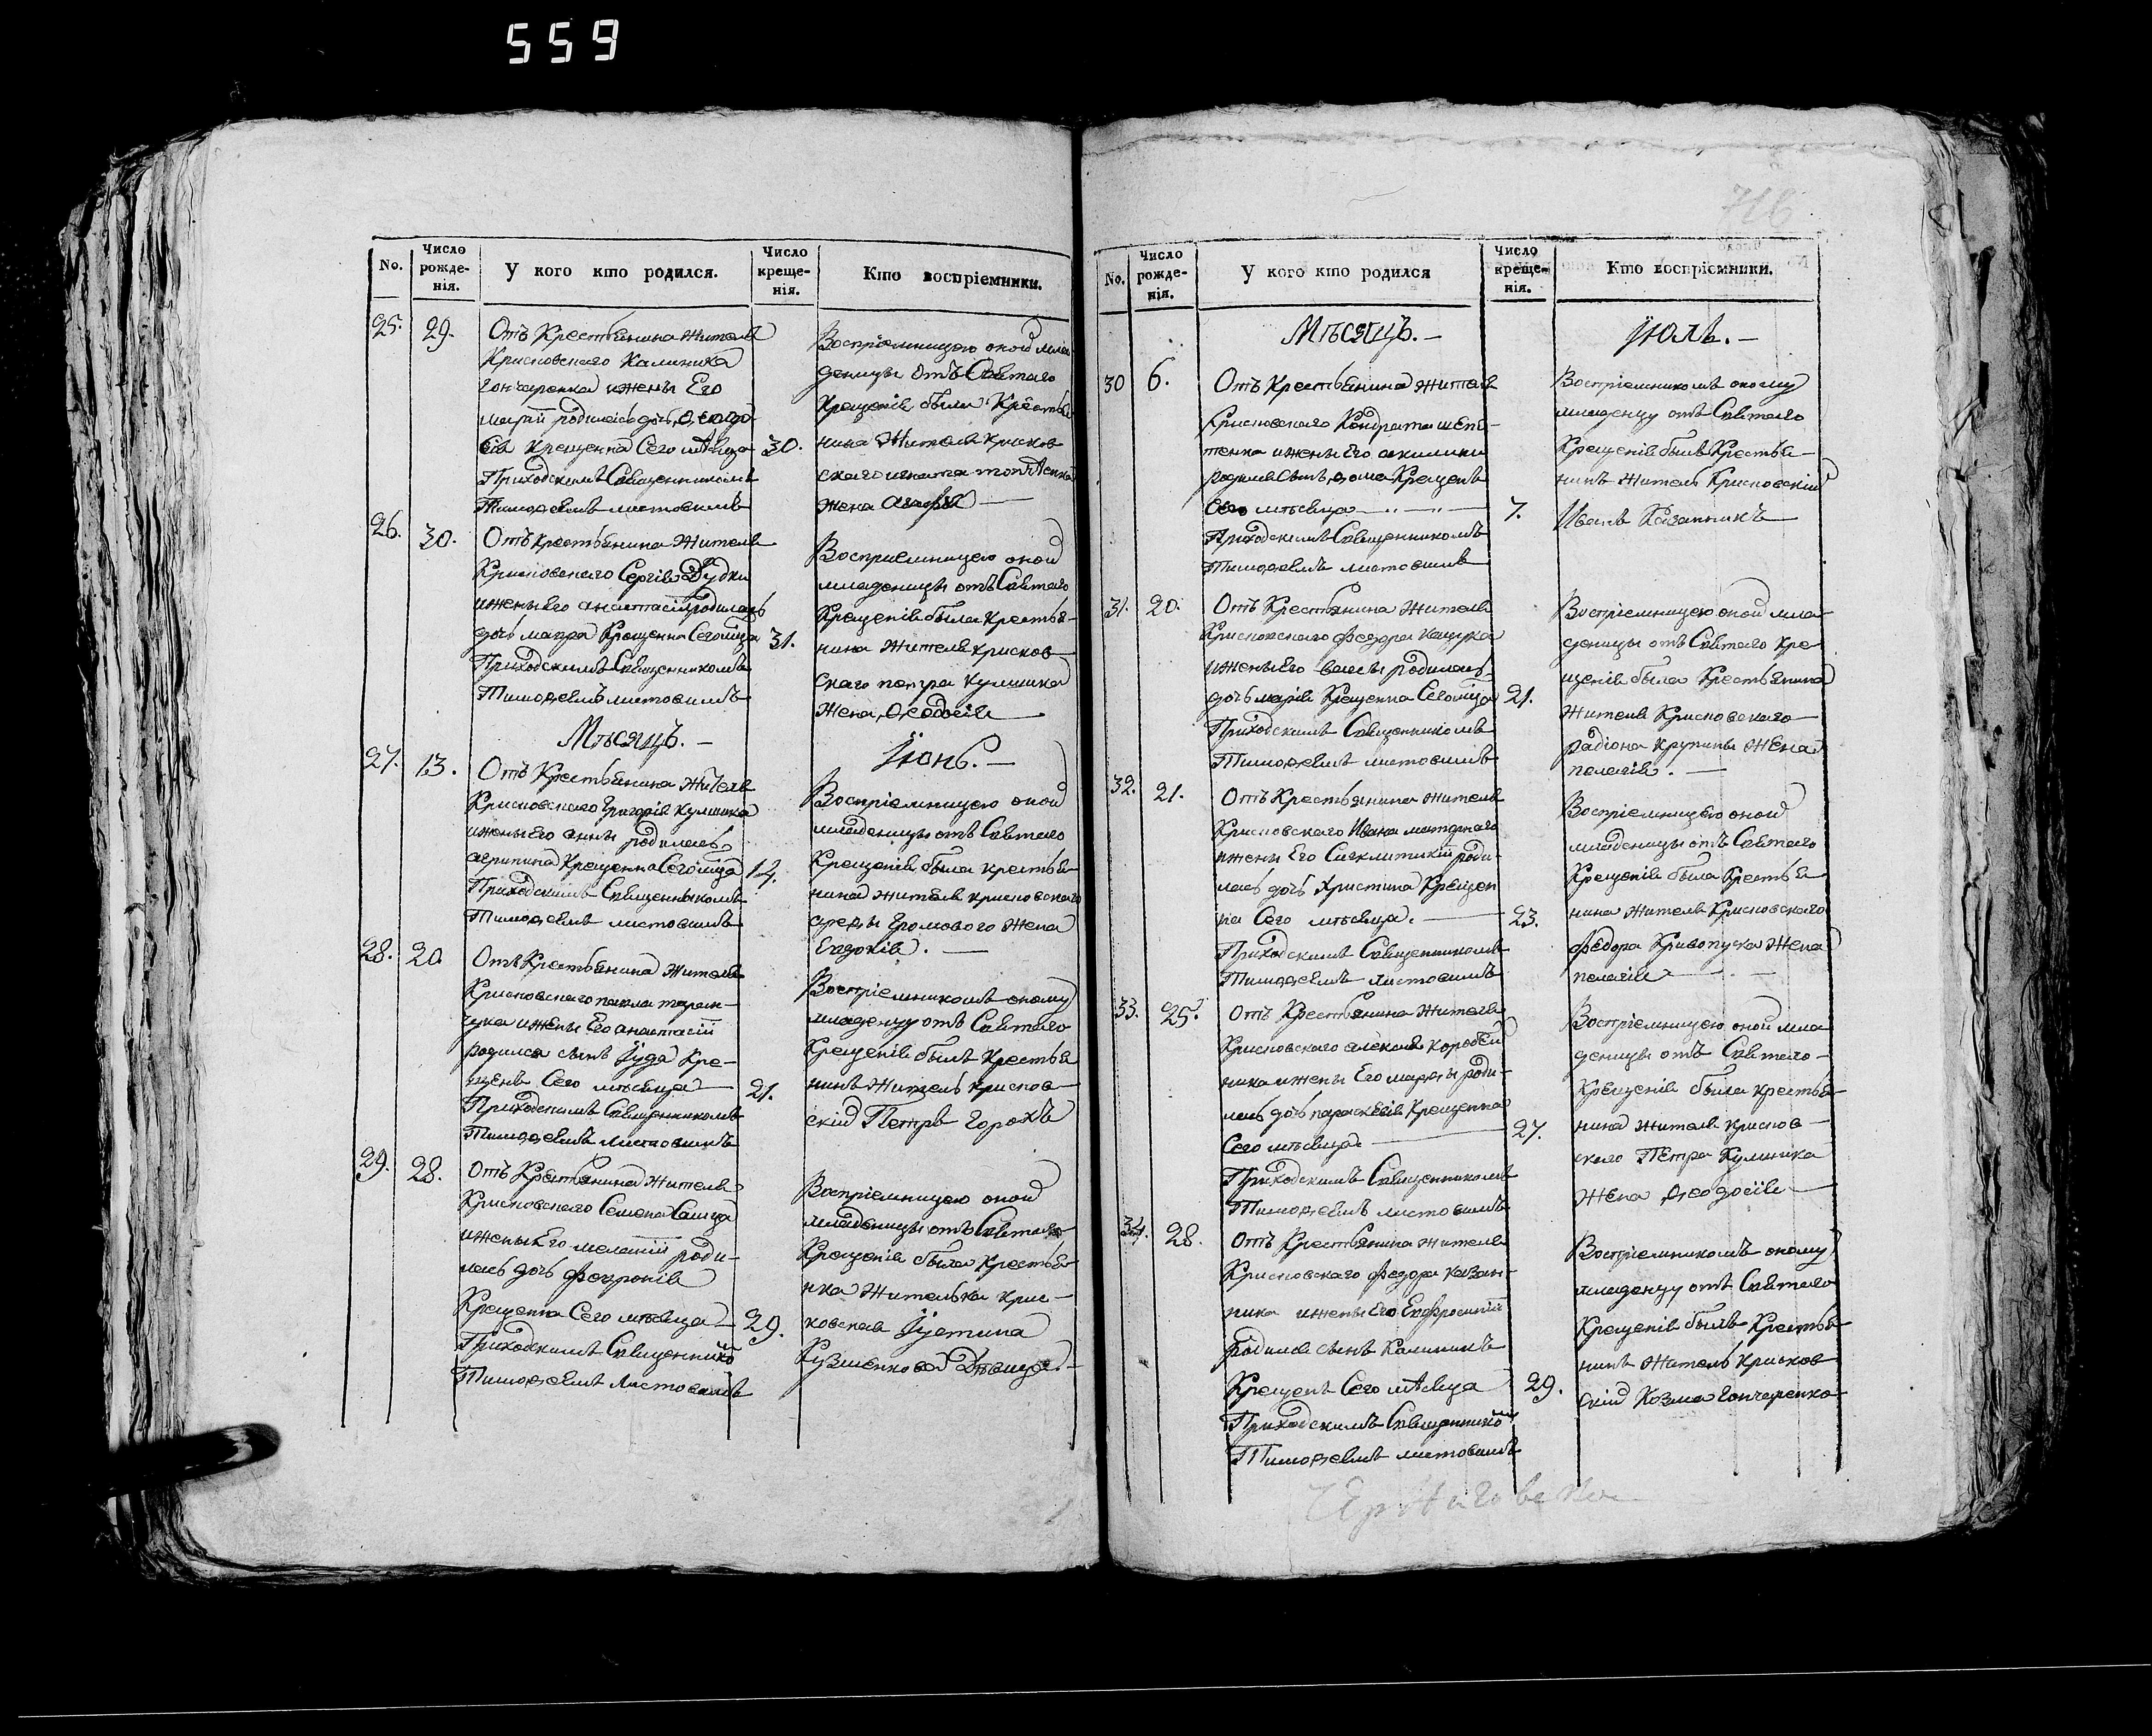 559
716
No.
Число рожденія.
У кого кто родился.
Число крещенія.
Кто воспріемники.
25. 29.
Отъ Крестьянина Жителя
Крисковского Калиника
гончаренка ижены Его
маріи родилась дочь Ѳеодо-
сія крещенна Сего мѣсяца 30.
Приходскимъ Священникомъ
Тимоѳеемъ листовимъ
Воспріемницею оной мла
деницы отъ Святаго
Крещенія была Крестья
нина Жителя крисков
скаго игната
жена
26. 30.
Отъ крестьянина Жителя
Крисковского Сергія Дудки
ижены Его анастасіи родилась
дочь мавра Крещенна Сего мца 31.
Приходскимъ Священникомъ
Тимоѳеемъ листовимъ
Воспріемницею оной
младеницы отъ Святаго
Крещенія была крестья-
нина Жителя крисков
скаго петра кулиника
Жена Ѳеодосія
Мѣсяцъ. — Іюнь. —
27. 13.
Отъ Крестьянина Жителя
Крисковского Григорія Кулиника
ижены Его анны родилась
агрипина Крещенна Сего мца 14.
Приходскимъ Священникомъ
Тимоѳеемъ листовимъ
Воспріемницею оной
младеницы отъ Святаго
Крещенія была крестья
нина жителя крисковскаго
Громового Жена
Евдокія. —
28. 20.
Отъ Крестьянина Жителя
Крисковского павла таран-
чука ижены Его анастасіи
родился сынъ Іуда Кре-
щенъ Сего мѣсяца — 21.
Приходскимъ Священникомъ
Тимоѳеемъ листовимъ
Воспріемникомъ оному
младенцу отъ Святаго
Крещенія былъ Крестья
нинъ Житель крисков-
скій Петръ горохъ
29. 28.
Отъ Крестьянина Жителя
Крисковского Семена
ижены Его меланіи роди-
лась дочь февронія
Крещенна Сего мѣсяца — 29.
Приходскимъ Священнико
Тимоѳеемъ листовимъ
Воспріемницею оной
младеницы отъ Святаго
Крещенія была Крестья-
нка Жителька крис-
ковская Іустина
Кузменкова Дѣвица. —
No.
Число рожденія.
У кого кто родился
Число крещенія.
Кто воспріемники.
Мѣсяцъ. — Іюль. —
30 6.
Отъ Крестьянина Жителя
Крисковского Кондрата шеп-
тенка ижены Его акилины
родился Сынъ Ѳома Крещенъ
Сего мѣсяца — 7.
Приходскимъ Священникомъ
Тимоѳеемъ листовимъ
Воспріемникомъ оному
младенцу отъ Святаго
Крещенія былъ Крестья-
нинъ Житель Крисковскій
Иванъ Казанникъ
31. 20.
Отъ Крестьянина Жителя
Крисковского федора кацурка
ижены Его родилась
дочь марія Крещенна Сего мца 21.
Приходскимъ Священникомъ
Тимоѳеемъ листовимъ
Воспріемницею оной мла-
деницы отъ Святаго Кре
щенія была Крестьянина
Жителя Крисковскаго
радіона крупины Жена
пелагія. —
32. 21.
Отъ Крестьянина Жителя
Крисковского Ивана
ижены Его Сигклитикіи роди-
лась дочь Христина Крещен
на Сего мѣсяца. — 23.
Приходскимъ Священникомъ
Тимоѳеемъ листовимъ
Воспріемницею оной
младеницы отъ Святаго
Крещенія была Крестья
нина Жителя Крисковского
федора Кривопуска Жена
пелагія —
33. 25.
Отъ Крестьянина Жителя
Крисковского алексея коробей
ника ижены Его марѳы роди-
лась дочь параскевія Крещенна
Сего мѣсяца — 27.
Приходскимъ Священникомъ
Тимоѳеемъ листовимъ
Воспріемницею оной мла
деницы отъ Святаго —
Крещенія была крестья-
нина жителя крисков —
скаго Петра Кулиника
Жена Ѳеодосія —
34. 28.
Отъ Крестьянина Жителя
Крисковского федора казан-
ника ижены Его Евфросиніи
родился сынъ Калиникъ
Крещенъ Сего мѣсяца 29.
Приходскимъ Священнико
Тимоѳеемъ листовимъ
Воспріемникомъ оному
младенцу отъ Святаго
Крещенія былъ Крестья-
нинъ Житель крисков
скій Козма гончаренко